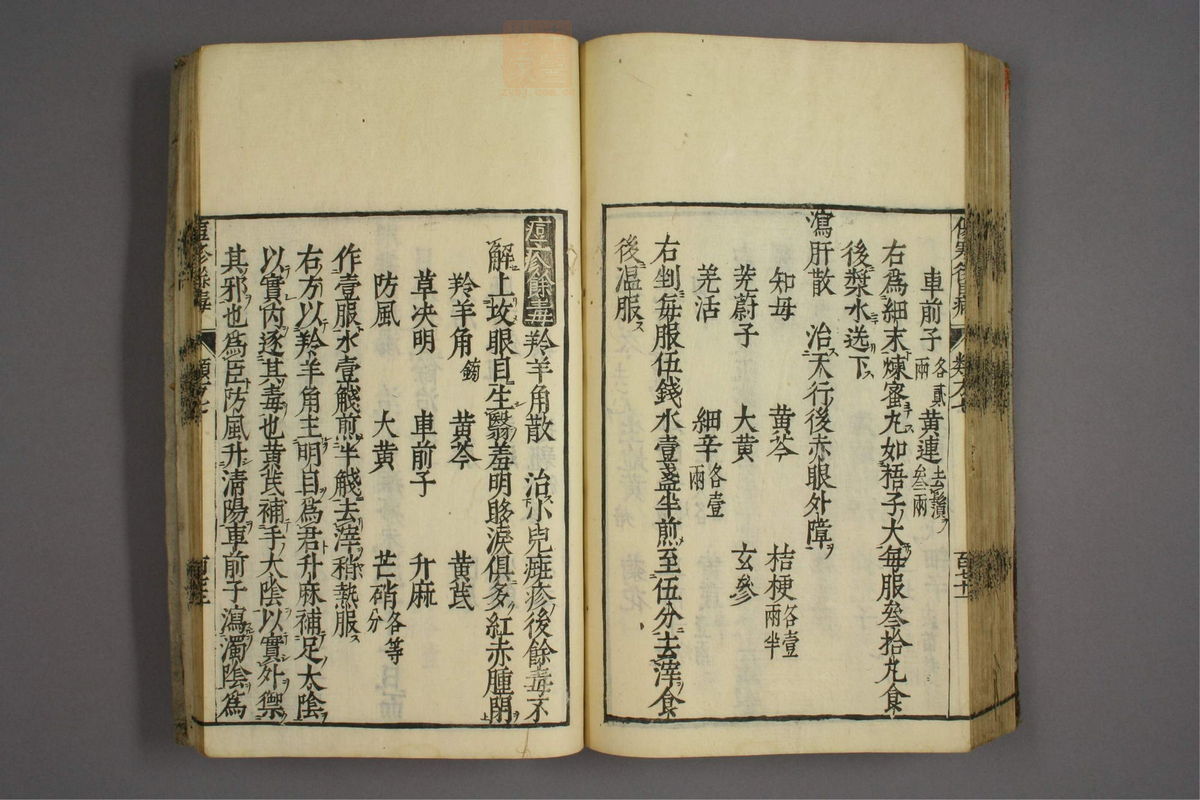 車前子各貳兩 黄連去鬚叁兩
右為細末煉蜜丸如梧子大每服叁拾丸食
後漿水送下
瀉肝散 治天行後赤眼外障
知母 黄芩 桔梗各壹兩半
茺蔚子 大黄 玄參
羌活 細辛各壹兩
右剉每服伍錢水壹盞半煎至伍分去滓食
後温服
痘疹餘毒 羚羊角散 治小兒斑疹後餘毒不
解上攻眼目生翳羞明眵淚俱多紅赤腫閉
羚羊角鎊 黄芩 黄芪
草决明 車前子 升麻
防風 大黄 芒硝各等分
作壹服水壹觥煎半觥去滓稍熱服
右方以羚羊角主明目為君升麻補足太陰
以實内逐其毒也黄芪補手太陰以實外禦
其邪也為臣防風升清陽車前子瀉濁陰為